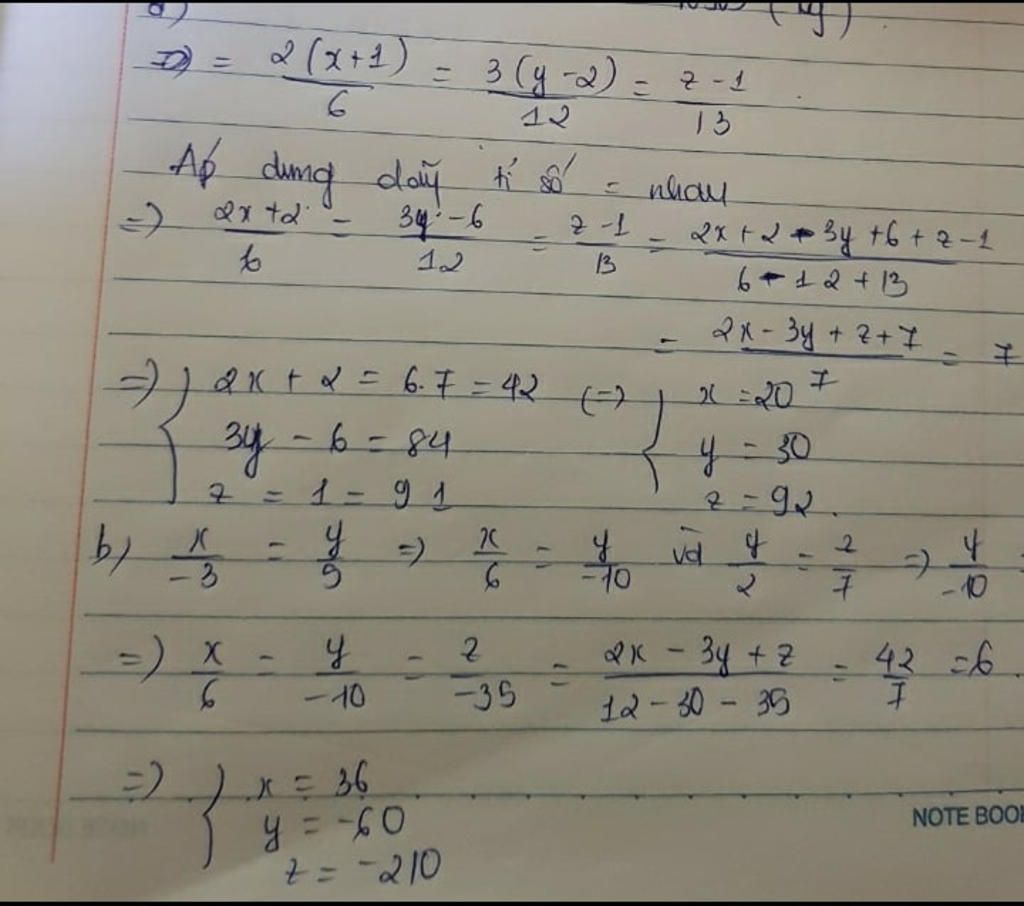 a)
=> = 2(x+1)/6 = 3(y-2)/12 = z-1/13 .
Áp dụng dãy tỉ số = nhau
=> 2x+2/6 = 3y-6/12 = z-1/13 = 2x+2-3y+6+z-1/6-12+13
= 2x-3y+z+7/7 = 7
=> { 2x+2 = 6.7 = 42 (=> { x = 20
3y - 6 = 84 y = 30
z = 1 = 91 z = 92.
b) x/-3 = y/5 => x/6 = y/-10 và y/2 = z/7 => y/-10 =
=> x/6 = y/-10 = z/-35 = 2x-3y+z/12-30-35 = 42/7 = 6.
=> { x = 36
y = -60
z = -210
NOTE BOO